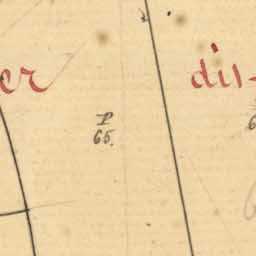 er
dis-
P
65.
6